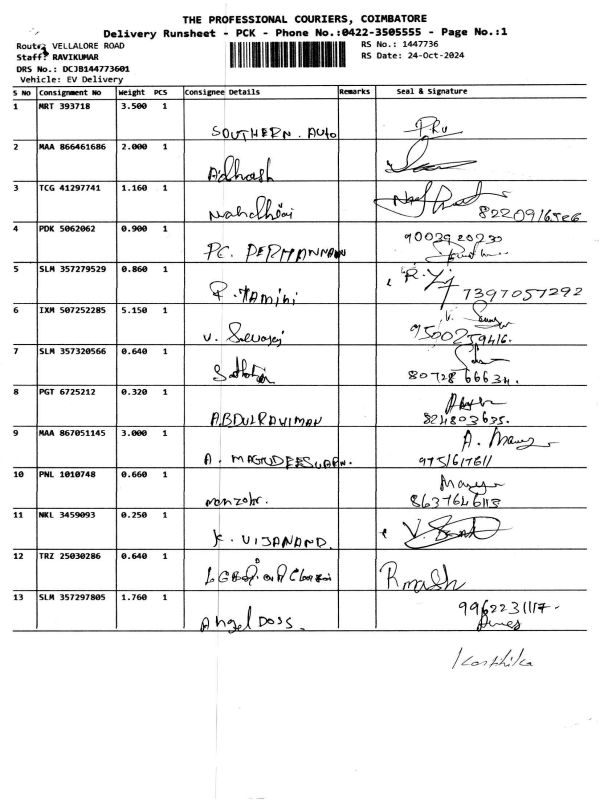 THE PROFESSIONAL COURIERS, COIMBATORE
Delivery Runsheet - PCK - Phone No.:0422-3505555 - Page No.:1
Route: VELLALORE ROAD
RS No.: 1447736
Staff: RAVIKUMAR
RS Date: 24-Oct-2024
DRS No.: DCJB144773601
Vehicle: EV Delivery
S No Consignment No Weight PCS Consignee Details Remarks Seal & Signature
1 MRT 393718 3.500 1
SOUTHERN. AUTO
2 MAA 866461686 2.000 1
Adhash
3 TCG 41297741 1.160 1
4 PDK 5062062 0.900 1
9003920230
PC.
5 SLM 357279529 0.860 1
7397057292
6 IXM 507252285 5.150 1
V.
9500259416.
7 SLM 357320566 0.640 1
80728 66634.
8 PGT 6725212 0.320 1
ABDULRAHIMAN
824803635.
9 MAA 867051145 3.000 1
A.
9751617611
10 PNL 1010748 0.660 1
8637646113
11 NKL 3459093 0.250 1
K. VIJANAND.
12 TRZ 25030286 0.640 1
13 SLM 357297805 1.760 1
9962231117.
Angel DOSS.
Karthika